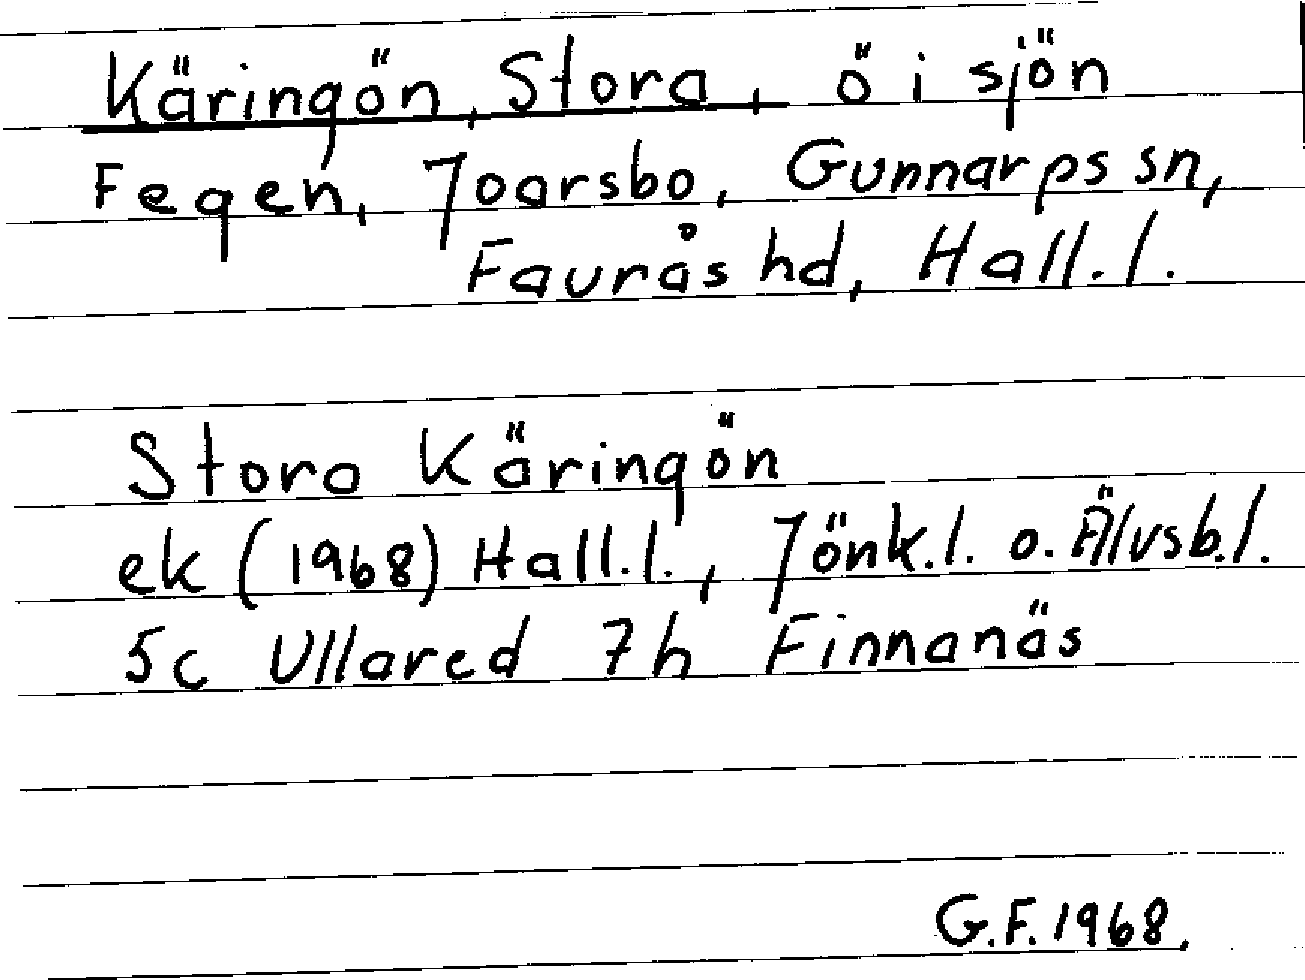 Käringön, Stora, ö i sjön
Fegen, Joarsbo, Gunnarps sn,
Faurås hd, Hall.l.
Stora Käringön
ek (1968) Hall.l., Jönk.l. o. Älvsb.l.
5c Ullared 7h Finnanäs
G.F. 1968.